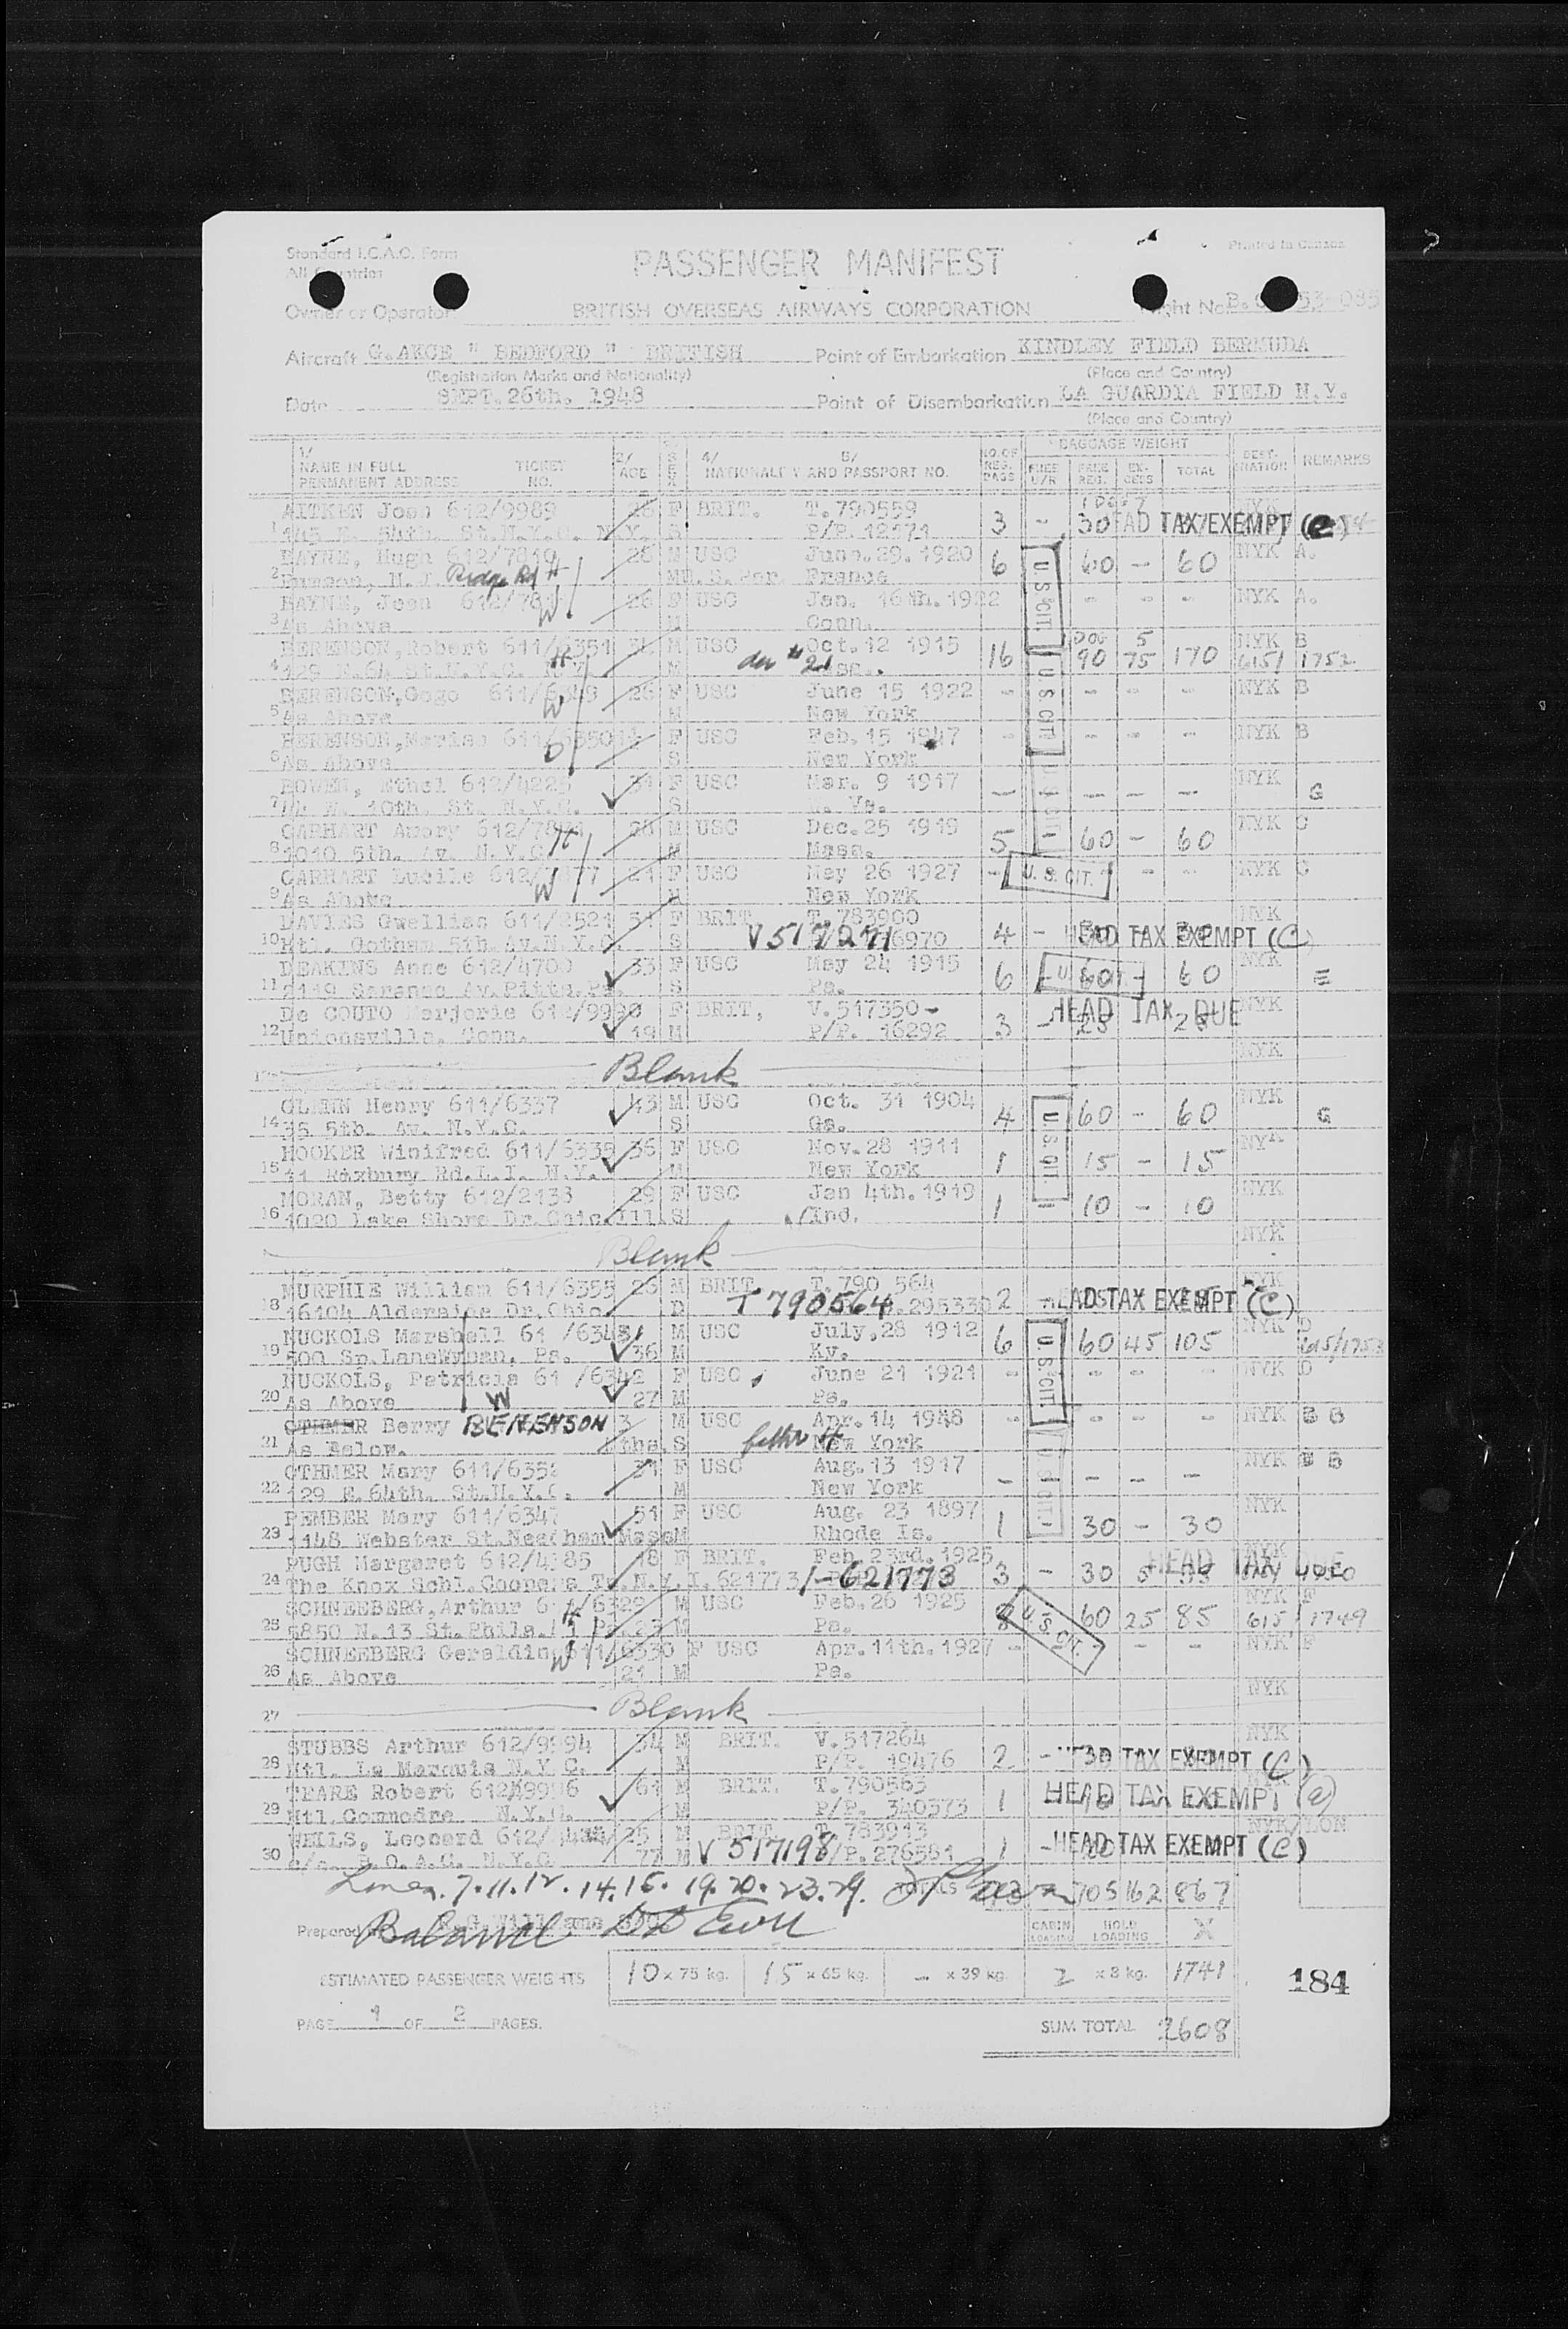 Standard I.C.A.O. Form
All Countries
PASSENGER MANIFEST
Printed in Canada
Owner or Operator BRITISH OVERSEAS AIRWAYS CORPORATION
Aircraft G.AKCE " BEDFORD " BRITISH Point of Embarkation KINDLEY FIELD BERMUDA
(Registration Marks and Nationality) (Place and Country)
Date SEPT. 26th. 1948 Point of Disembarkation LA GUARDIA FIELD N.Y.
(Place and Country)
BAGGAGE WEIGHT
1/ NAME IN FULL PERMANENT ADDRESS TICKET NO. 2/ AGE SEX 4/ NATIONALITY AND PASSPORT NO. 5/ NO. OF REG. PASS FREE U/R FREE REG. EX-CESS TOTAL DEST-INATION REMARKS
AITKEN Joan 612/9989 F BRIT. T.790559
1 145 E. 54th. St. N.Y. S P/P. 12171 3 - 30 HEAD TAX EXEMPT
BAYNE, Hugh 612/7819 28 M USC June.29. 1920 6 60 - 60 NYK A.
2 Rumson, N.J. Ridge Rd H M U.S.Par France
BAYNE, Joan 612/78 W 26 F USC Jan. 16th. 1922 - - - NYK A.
3 As Above M Conn.
U.S. CIT.
BERENSON, Robert 611/6351 M USC Oct. 12 1915 DOG 5 NYK B
4 129 E.64 St. N.Y.C. H M 16 90 75 170 6151 1752
BERENSON, Gogo 611/6349 26 F USC June 15 1922 - - - - NYK B
5 As Above W M New York
U.S. CIT.
BERENSON, Marisa 611/6350 F USC Feb. 15 1947 - - - - NYK B
6 As Above D S New York
BOWEN, Ethel 612/4225 31 F USC Mar. 9 1917 - - - - NYK
7 W. 10th. St. N.Y.C. S W. Va. G
CARHART Amory 612/78 H 28 M USC Dec. 25 1919 5 - 60 - 60 NYK C
8 1010 5th. Av. N.Y.C. M Mass.
CARHART Lucile 612/7877 W 21 F USC May 26 1927 - U.S. CIT. - - NYK C
9 As Above M New York
DAVIES Gwellian 611/2521 51 F BRIT T. 783900 NYK
10 Htl. Gotham 5th. Av. N.Y.C. S V517271 4 - HEAD TAX EXEMPT (C)
DEAKINS Anne 612/4700 33 F USC May 24 1915 6 U.S. CIT. 60 - 60 NYK
11 2119 Saranac Av. Pitts. Pa. S Pa. E
De COUTO Marjorie 612/9990 F BRIT, V.517350- HEAD TAX DUE NYK
12 Unionsville, Conn. 19 M P/P. 16292 3 -
Blank NYK
GLENN Henry 611/6337 43 M USC Oct. 31 1904 4 60 - 60 NYK
14 35 5th. Av. N.Y.C. S Ga. G
HOOKER Winifred 611/6335 36 F USC Nov. 28 1911 1 15 - 15 NYK
15 11 Roxbury Rd. L.I. N.Y. M New York
U.S. CIT.
MORAN, Betty 612/2138 29 F USC Jan 4th. 1919 1 - 10 - 10 NYK
16 1020 Lake Shore Dr. Chic. Ill. S Ind.
Blank NYK
MURPHIE William 611/6355 26 M BRIT T. 790 564 NYK
18 16104 Aldersine Dr. Chic D T 790564 295330 2 HEAD TAX EXEMPT (C)
NUCKOLS Marshall 61 /6343 M USC July, 28 1912 6 60 45 105 NYK D
19 500 Sp. Lane Wyman. Pa. 36 M Ky. 615/1753
NUCKOLS, Patricia 61 /6342 F USC June 21 1921 - - - - NYK D
20 As Above W 27 M Pa.
U.S. CIT.
OTHMER Berry BERENSON M USC Apr. 14 1948 - - - - NYK B
21 As Below. ths. S father 4 New York
OTHMER Mary 611/6352 31 F USC Aug. 13 1917 - - - - NYK B
22 129 E. 64th. St. N.Y.C. M New York
U.S. CIT.
PEMBER Mary 611/6347 51 F USC Aug. 23 1897 NYK
23 148 Webster St. Needham Mass M Rhode Is. 1 30 - 30
PUGH Margaret 612/4385 18 F BRIT. Feb 23rd. 1925 HEAD TAX DUE NYK
24 The Knox Schl. Coopers Tn. N.Y. I. 621773 I-621773 3 - 30 5
SCHNEEBERG, Arthur 61 /6329 M USC Feb. 26 1925 U.S. CIT. 60 25 85 NYK F
25 5850 N. 13 St. Phila. Pa. 23 M Pa. 615 1749
SCHNEEBERG Geraldin 611/6330 F USC Apr. 11th. 1927 - - - - NYK F
26 As Above W 21 M Pa.
27 Blank NYK
STUBBS Arthur 612/9994 34 M BRIT. V.517264 NYK
28 Htl. La Marquis N.Y.C. M P/P. 19476 2 - 30 HEAD TAX EXEMPT (C)
TEARE Robert 612/9996 61 M BRIT. T. 790563
29 Htl. Commodre N.Y.C. M P/P. 340373 1 HEAD TAX EXEMPT (C)
WELLS, Leonard 612/ 25 M BRIT T. 783913 NYK/LON
30 c/o. B.O.A.C. N.Y.C. 77 M V 517198 /P. 276581 1 - HEAD TAX EXEMPT (C)
Lines. 7. 11. 12. 14. 15. 19. 20. 23. 29. TOTALS 705 162 867
Prepared Balance
CABIN LOADING HOLD LOADING X
ESTIMATED PASSENGER WEIGHTS 10 x 75 kg. 15 x 65 kg. - x 39 kg. 2 x 8 kg. 1741
184
PAGE 1 OF 2 PAGES. SUM TOTAL 2608